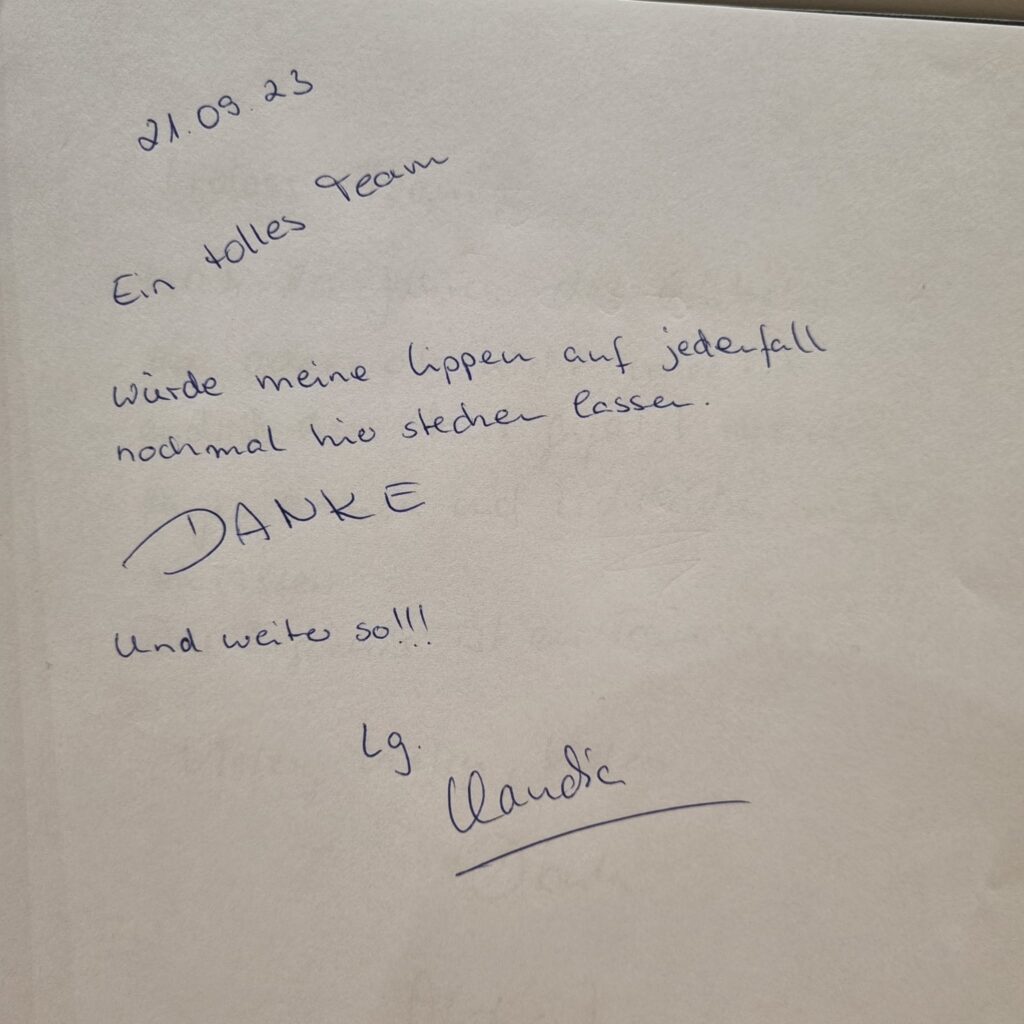 21.09.23
Ein tolles Team
würde meine Lippen auf jedenfall
nochmal hier stechen lassen.
DANKE
Und weiter so!!!
Lg.
Claudia